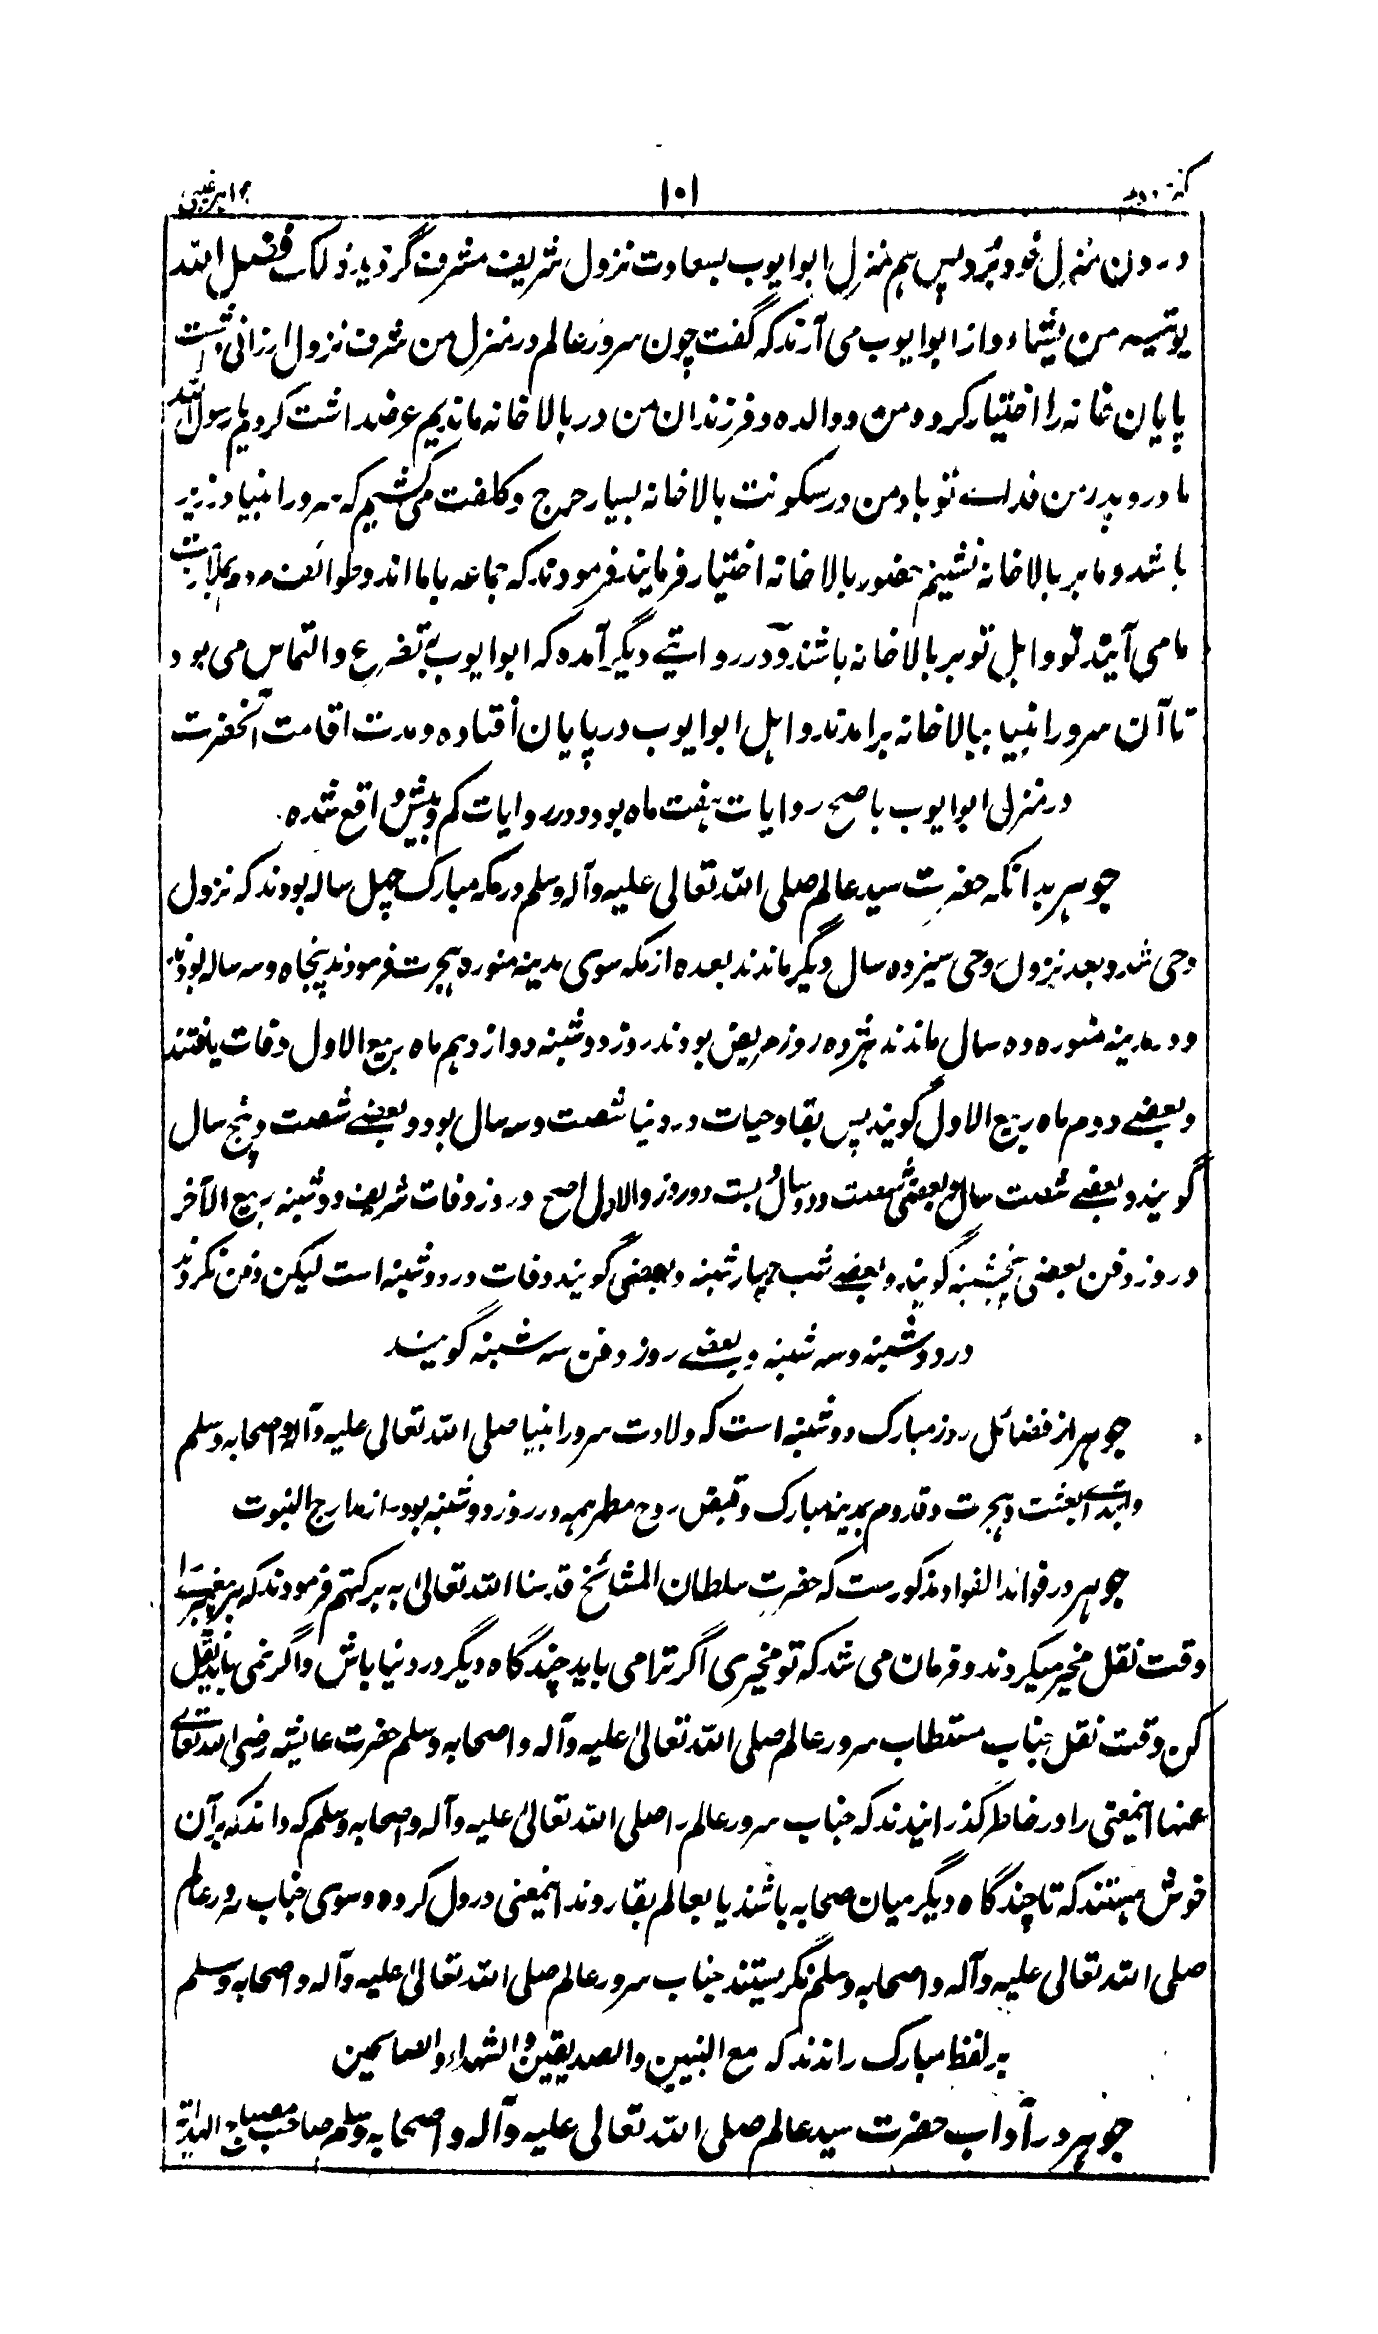 ۱۰۱
درون منزل خود برد پس هم منزل ابو ایوب بسعادت نزول شریف مشرف گردید ذلک فضل الله
یوتیه من یشاء و از ابو ایوب می آرند که گفت چون سرور عالم در منزل من شرف نزول ارزانی داشت
پایان خانه را اختیار کرد و من و والده و فرزندان من در بالا خانه ماندیم عرضداشت کردیم یا رسول الله
مادر و پدر من فدای تو باد من در سکونت بالا خانه بسیار حرج و کلفت می کشیم که سرور انبیا در زیر
باشد و ما بر بالا خانه نشینیم حضور بالا خانه اختیار فرمایند فرمودند که جماعه با ما اند و طوائف مردم بملازمت
ما می آیند تو و اهل تو بر بالا خانه باشند و در روایتے دیگر آمده که ابو ایوب به تضرع و التماس می بود
تا آن سرور انبیا ببالا خانه برامدند و اهل ابو ایوب در پایان افتاده و مدت اقامت آنحضرت
در منزل ابو ایوب باصح روایات هفت ماه بود و در روایات کم و بیش واقع شده
جوهر بدانکه حضرت سید عالم صلی الله تعالی علیه و آله وسلم در مکه مبارک چهل ساله بودند که نزول
وحی شد و بعد نزول وحی سیزده سال دیگر ماندند بعده از مکه سوی مدینه منوره هجرت فرمودند پنجاه و سه ساله بودند
و در مدینه منوره ده سال ماندند هژده روز مریض بودند روز دوشنبه دوازدهم ماه ربیع الاول وفات یافتند
و بعضے دوم ماه ربیع الاول گویند پس بقا و حیات در دنیا شصت و سه سال بود و بعضے شصت و پنج سال
گویند و بعضے شصت سال و بعضی شصت و دو سال و بست دو روز والاول اصح و روز وفات شریف دوشنبه ربیع الآخر
و روز دفن بعضی پنجشنبه گویند و بعضے شب چهارشنبه و بعضی گویند وفات در دوشنبه است لیکن دفن نکردند
در دوشنبه و سه شنبه و بعضے روز دفن سه شنبه گویند
جوهر از فضائل روز مبارک دوشنبه است که ولادت سرور انبیا صلی الله تعالی علیه و آله و اصحابه وسلم
و ابتداے بعثت و هجرت و قدوم بمدینه مبارک و قبض روح مطهر همه در روز دوشنبه بود از معارج النبوت
جوهر در فوائد الفواد مذکورست که حضرت سلطان المشائخ قدسنا الله تعالی به برکتهم فرمودند که هر پیغمبر را
وقت نقل مخیر میکردند و فرمان می شد که تو مخیری اگر ترا می باید چند گاه دیگر در دنیا باش و اگر نمی باید نقل
کن وقت نقل جناب مستطاب سرور عالم صلی الله تعالی علیه و آله و اصحابه وسلم حضرت عایشه رضی الله تعالے
عنها اینمعنی را در خاطر گذرانیدند که جناب سرور عالم را صلی الله تعالی علیه و آله و اصحابه وسلم که داند که بر آن
خوش هستند که تا چند گاه دیگر میان صحابه باشند یا بعالم بقا روند اینمعنی در دل کرده و سوی جناب سرور عالم
صلی الله تعالی علیه و آله و اصحابه وسلم نگریستند جناب سرور عالم صلی الله تعالی علیه و آله و اصحابه وسلم
بر لفظ مبارک راندند که مع النبیین والصدیقین والشهداء والصالحین
جوهر در آداب حضرت سید عالم صلی الله تعالی علیه و آله و اصحابه وسلم صاحب مصباح الهدایة